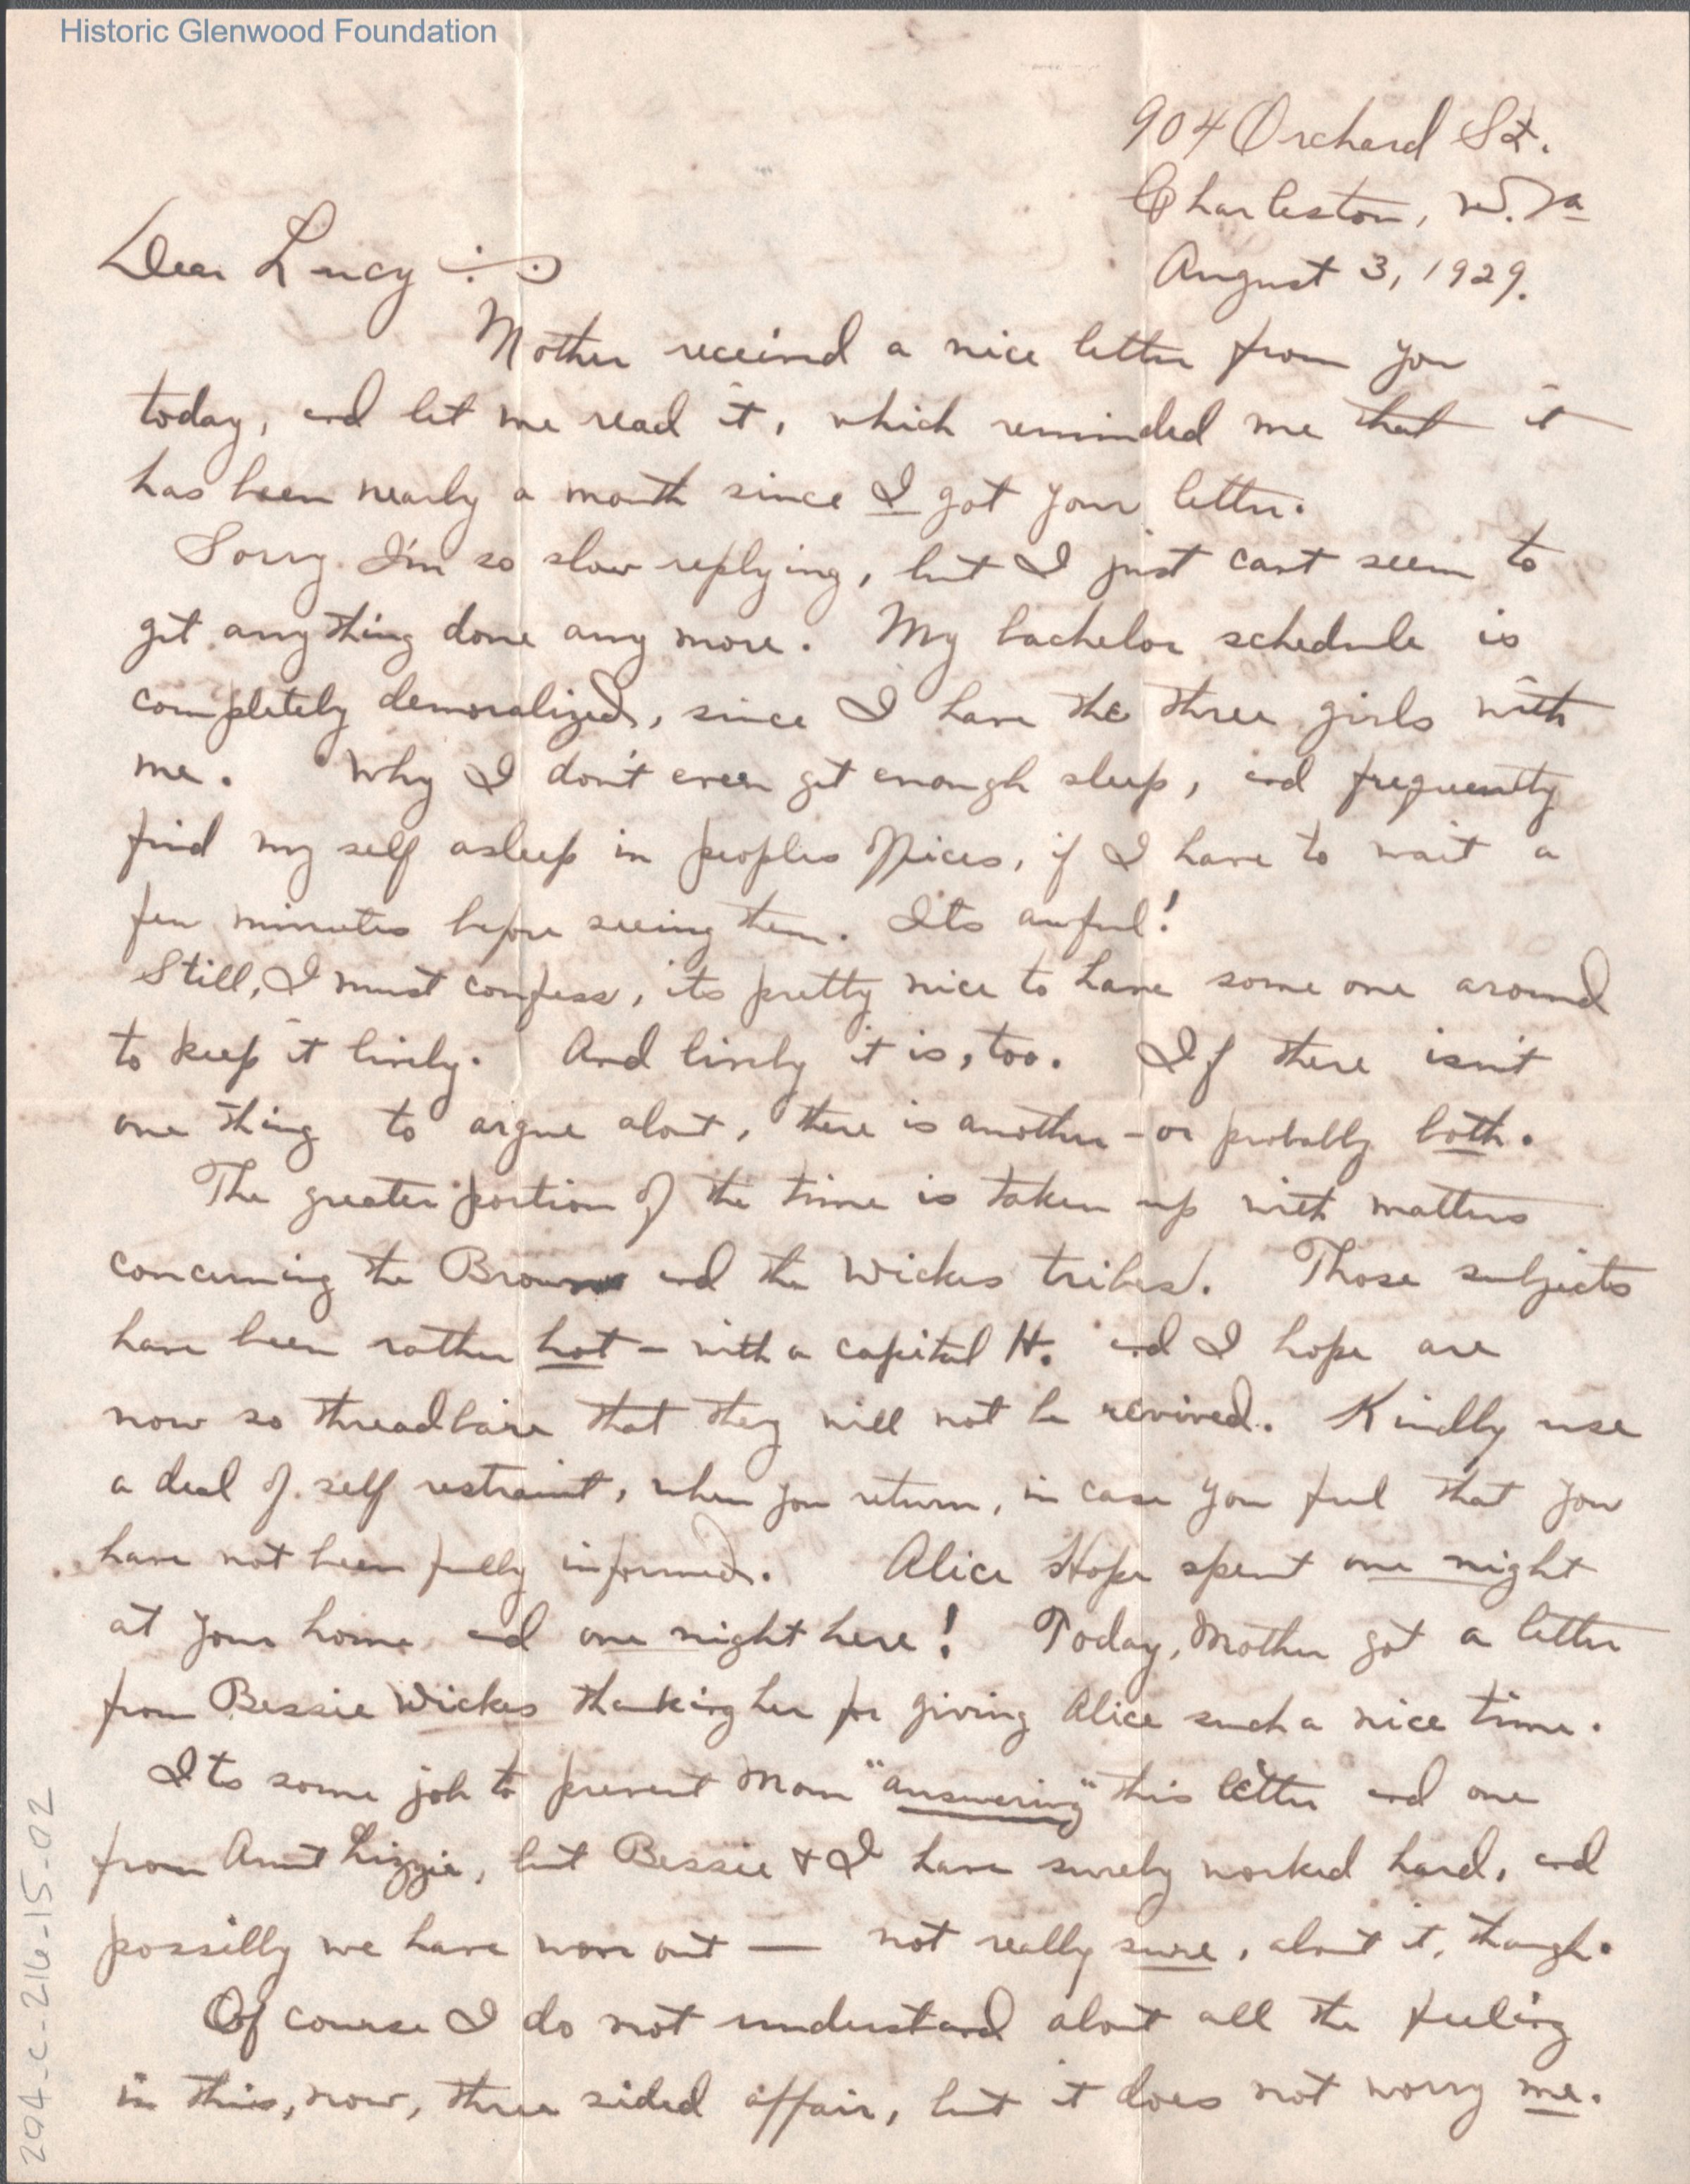 Historic Glenwood Foundation
904 Orchard St.
Charleston, W. Va
August 3, 1929.
Dear Lucy :-
Mother received a nice letter from you
today, and let me read it, which reminded me that it
has been nearly a month since I got your letter.
Sorry I'm so slow replying, but I just cant seem to
get any thing done any more. My bachelor schedule is
completely demoralized, since I have the three girls with
me. Why I don't even get enough sleep, and frequently
find my self asleep in peoples offices, if I have to wait a
few minutes before seeing them. Its awful!
Still, I must confess, its pretty nice to have some one around
to keep it lively. And lively it is, too. If there isn't
one thing to argue about, there is another - or probably both.
The greater portion of the time is taken up with matters
concerning the Brown and the Wickes tribes. Those subjects
have been rather hot - with a capital H. and I hope are
now so threadbare that they will not be revived. Kindly use
a deal of self restraint, when you return, in case you feel that you
have not been fully informed. Alice Hope spent one night
at your home and one night here! Today, Mother got a letter
from Bessie Wickes thanking her for giving Alice such a nice time.
Its some job to prevent Mom "answering" this letter and one
from Aunt Lizzie, but Bessie & I have surely worked hard, and
possilly we have won out — not really sure, about it, though.
Of course I do not understand about all the feeling
in this, now, three sided affair, but it does not worry me.
204-C-216-15-02